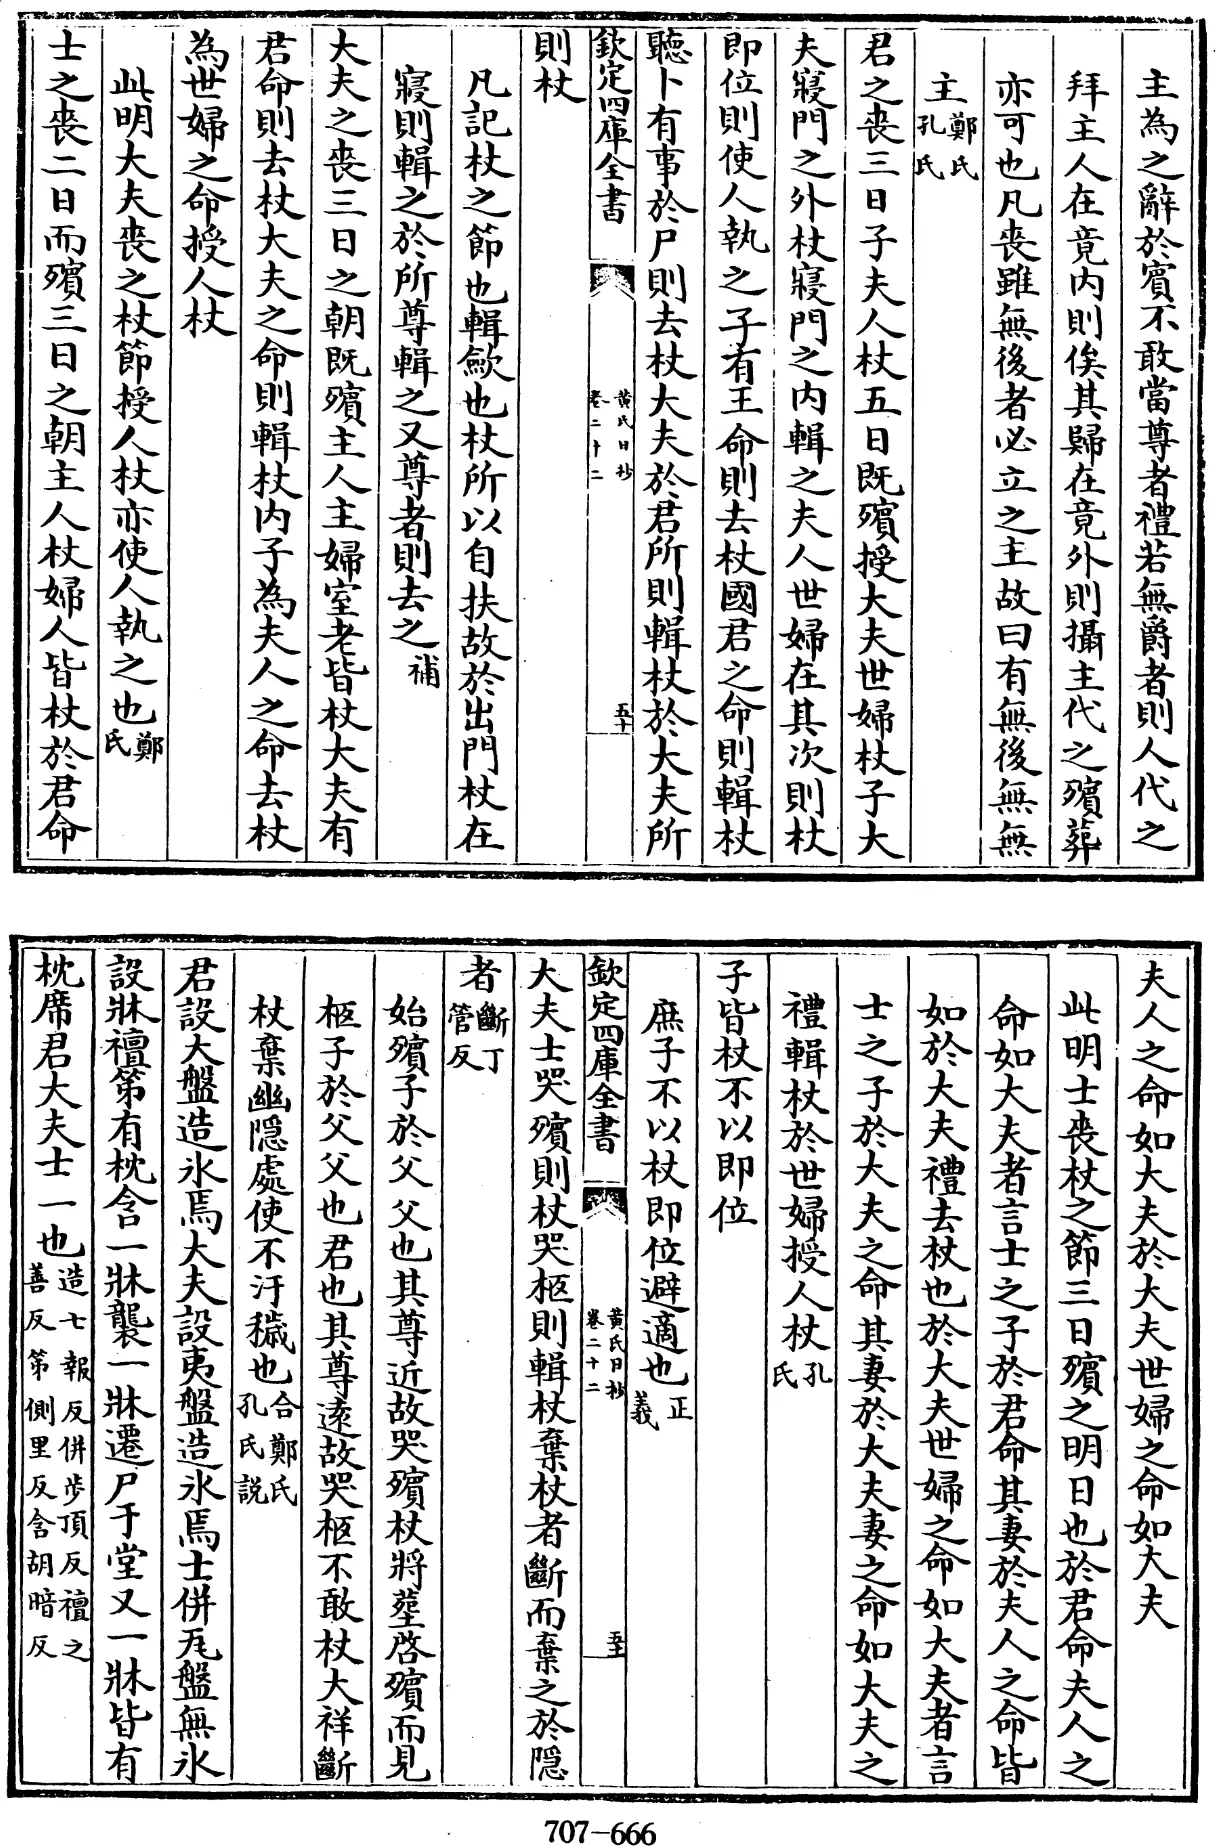 主為之辭於賓不敢當尊者禮若無爵者則人代之
拜主人在竟內則俟其歸在竟外則攝主代之殯葬
亦可也凡喪雖無後者必立之主故曰有無後無無
主鄭氏孔氏
君之喪三日子夫人杖五日既殯授大夫世婦杖子大
夫寢門之外杖寢門之內輯之夫人世婦在其次則杖
即位則使人執之子有王命則去杖國君之命則輯杖
聽卜有事於尸則去杖大夫於君所則輯杖於大夫所
欽定四庫全書 黃氏日抄卷二十二 五十
則杖
凡記杖之節也輯斂也杖所以自扶故於出門杖在
寢則輯之於所尊輯之又尊者則去之補
大夫之喪三日之朝既殯主人主婦室老皆杖大夫有
君命則去杖大夫之命則輯杖內子為夫人之命去杖
為世婦之命授人杖
此明大夫喪之杖節授人杖亦使人執之也鄭氏
士之喪二日而殯三日之朝主人杖婦人皆杖於君命
夫人之命如大夫於大夫世婦之命如大夫
此明士喪杖之節三日殯之明日也於君命夫人之
命如大夫者言士之子於君命其妻於夫人之命皆
如於大夫禮去杖也於大夫世婦之命如大夫者言
士之子於大夫之命其妻於大夫妻之命如大夫之
禮輯杖於世婦授人杖孔氏
子皆杖不以即位
庶子不以杖即位避適也正義
欽定四庫全書 黃氏日抄卷二十二 五十
大夫士哭殯則杖哭柩則輯杖棄杖者斷而棄之於隱
者斷丁管反
始殯子於父父也其尊近故哭殯杖將葬啓殯而見
柩子於父父也君也其尊遠故哭柩不敢杖大祥斷
杖棄幽隱處使不汙穢也合鄭氏孔氏說
君設大盤造氷焉大夫設夷盤造氷焉士併瓦盤無氷
設牀襢笫有枕含一牀襲一牀遷尸于堂又一牀皆有
枕席君大夫士一也造七報反併步頂反襢之善反笫側里反含胡暗反
707-666